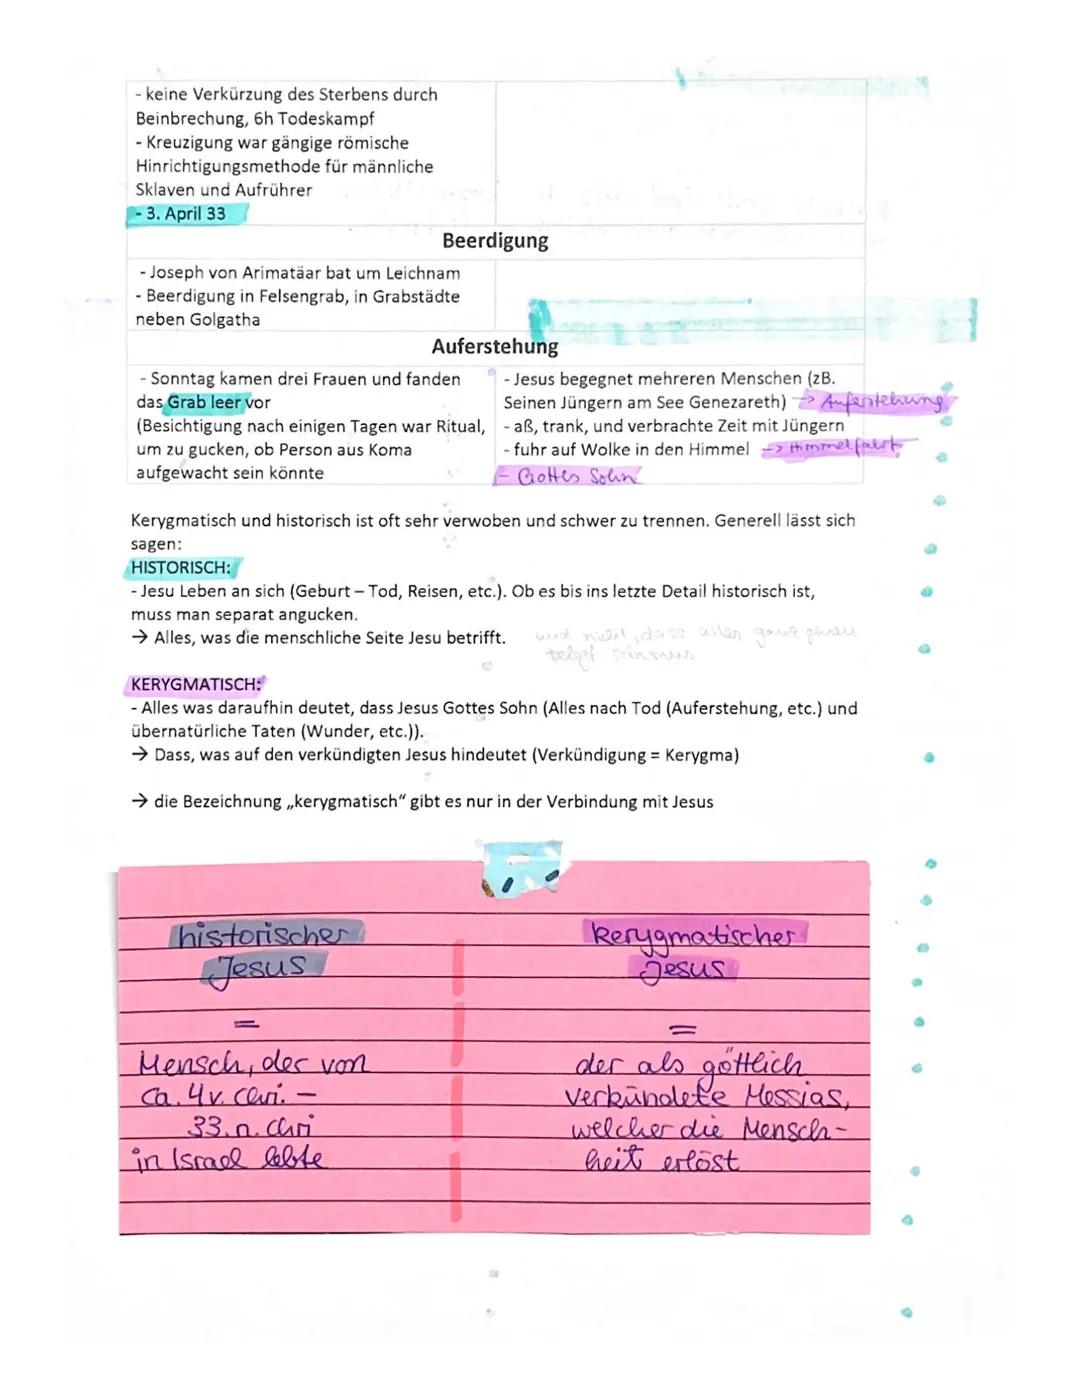 - keine Verkürzung des Sterbens durch
Beinbrechung, 6h Todeskampf
- Kreuzigung war gängige römische
Hinrichtigungsmethode für männliche
Sklaven und Aufrührer
- 3. April 33
Beerdigung
- Joseph von Arimatäar bat um Leichnam
- Beerdigung in Felsengrab, in Grabstädte
neben Golgatha
Auferstehung
- Sonntag kamen drei Frauen und fanden
das Grab leer vor
(Besichtigung nach einigen Tagen war Ritual,
um zu gucken, ob Person aus Koma
aufgewacht sein könnte
- Jesus begegnet mehreren Menschen (zB.
Seinen Jüngern am See Genezareth) -> Auferstehung
- aß, trank, und verbrachte Zeit mit Jüngern
- fuhr auf Wolke in den Himmel -> Himmelfahrt
- Gottes Sohn
Kerygmatisch und historisch ist oft sehr verwoben und schwer zu trennen. Generell lässt sich
sagen:
HISTORISCH:
- Jesu Leben an sich (Geburt – Tod, Reisen, etc.). Ob es bis ins letzte Detail historisch ist,
muss man separat angucken.
→ Alles, was die menschliche Seite Jesu betrifft. und nicht, dass alles ganz genau
belegt sein muss
KERYGMATISCH:
- Alles was daraufhin deutet, dass Jesus Gottes Sohn (Alles nach Tod (Auferstehung, etc.) und
übernatürliche Taten (Wunder, etc.)).
→ Dass, was auf den verkündigten Jesus hindeutet (Verkündigung = Kerygma)
→ die Bezeichnung „kerygmatisch" gibt es nur in der Verbindung mit Jesus
historischer
Jesus
=
Mensch, der von
ca. 4 v. Chri. –
33. n. Chri
in Israel lebte
kerygmatischer
Jesus
=
der als göttlich
verkündete Messias,
welcher die Mensch-
heit erlöst